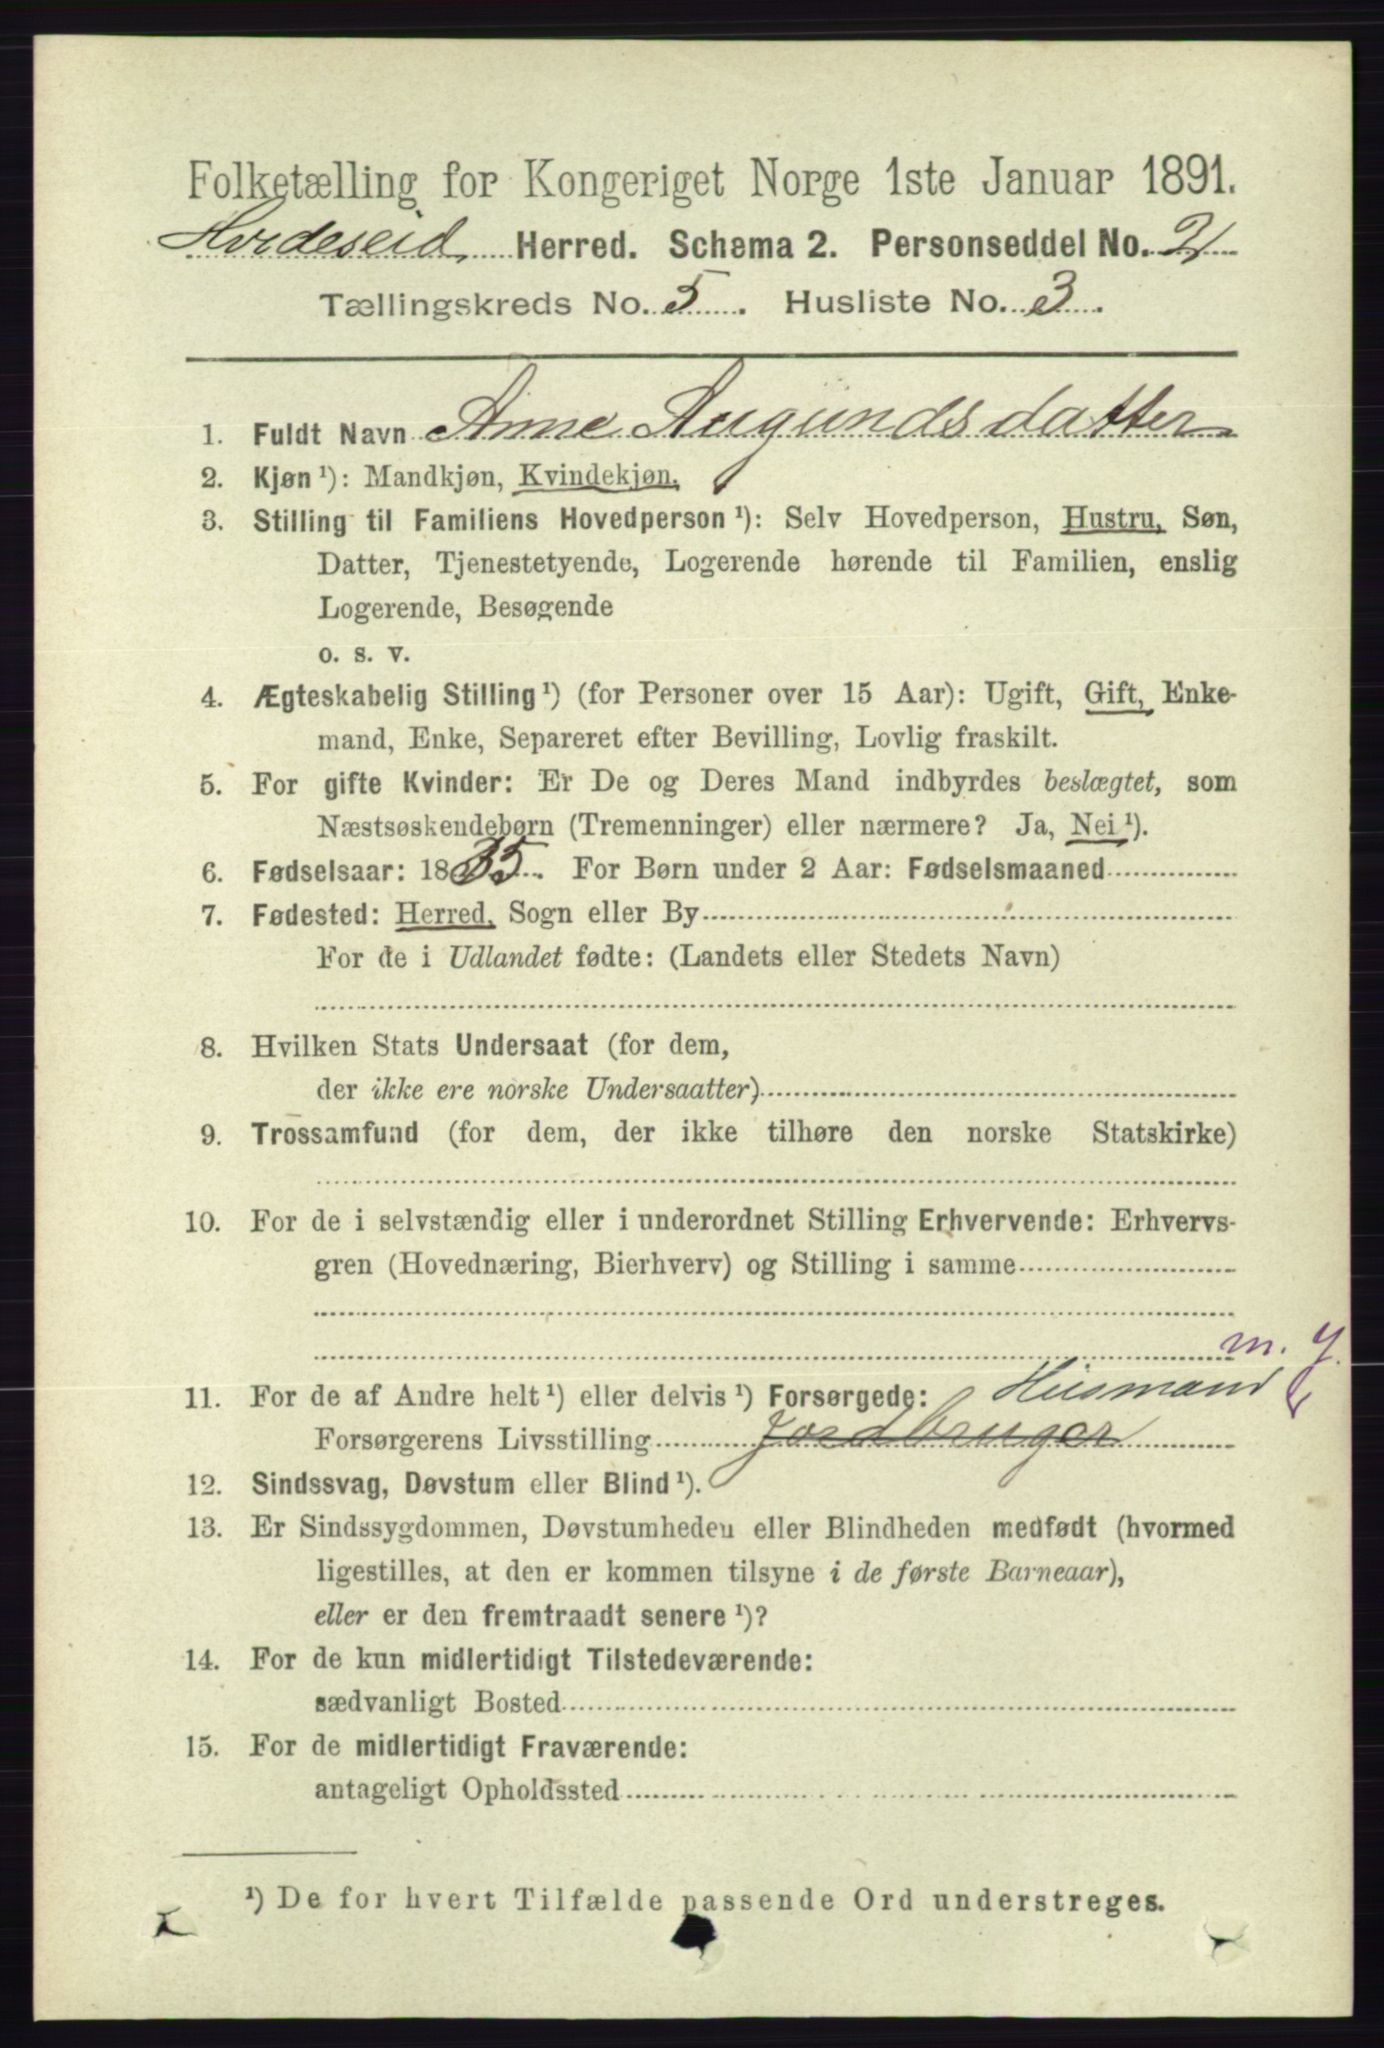 Folketælling for Kongeriget Norge 1ste Januar 1891.
Hvideseid Herred. Schema 2. Personseddel No. 2
Tællingskreds No. 5. Husliste No. 3.
1. Fuldt Navn Anne Augunds datter
2. Kjøn¹): Mandkjøn, Kvindekjøn.
3. Stilling til Familiens Hovedperson¹): Selv Hovedperson, Hustru, Søn,
Datter, Tjenestetyende, Logerende hørende til Familien, enslig
Logerende, Besøgende
o. s. v.
4. Ægteskabelig Stilling¹) (for Personer over 15 Aar): Ugift, Gift, Enke-
mand, Enke, Separeret efter Bevilling, Lovlig fraskilt.
5. For gifte Kvinder: Er De og Deres Mand indbyrdes beslægtet, som
Næstsøskendebørn (Tremenninger) eller nærmere? Ja, Nei¹).
6. Fødselsaar: 1835. For Børn under 2 Aar: Fødselsmaaned
7. Fødested: Herred, Sogn eller By
For de i Udlandet fødte: (Landets eller Stedets Navn)
8. Hvilken Stats Undersaat (for dem,
der ikke ere norske Undersaatter)
9. Trossamfund (for dem, der ikke tilhøre den norske Statskirke)
10. For de i selvstændig eller i underordnet Stilling Erhvervende: Erhvervs-
gren (Hovednæring, Bierhverv) og Stilling i samme
m. J.
11. For de af Andre helt¹) eller delvis¹) Forsørgede: Husmand
Forsørgerens Livsstilling Jordbruger
12. Sindssvag, Døvstum eller Blind¹).
13. Er Sindssygdommen, Døvstumheden eller Blindheden medfødt (hvormed
ligestilles, at den er kommen tilsyne i de første Barneaar),
eller er den fremtraadt senere¹)?
14. For de kun midlertidigt Tilstedeværende:
sædvanligt Bosted
15. For de midlertidigt Fraværende:
antageligt Opholdssted
¹) De for hvert Tilfælde passende Ord understreges.